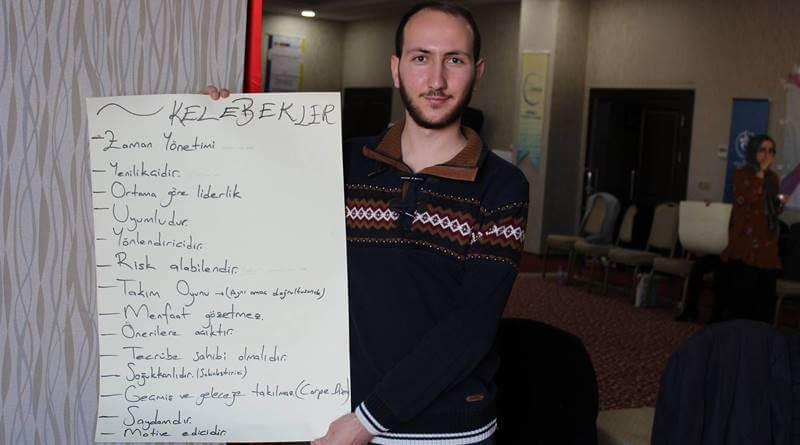 ~ KELEBEKLER
- Zaman Yönetimi
- Yenilikcidir.
- Ortama göre liderlik
- Uyumludur.
- Yönlendiricidir.
- Risk alabilendir.
- Takım Oyunu → (Aynı amaç doğrultusunda)
- Menfaat gözetmez.
- Önerilere açıktır.
- Tecrübe sahibi olmalıdır.
- Soğukkanlıdır. (Sababetirici)
- Geçmiş ve geleceğe takılmaz (Carpe Diem)
- Saydamdır.
- Motive edicidir.